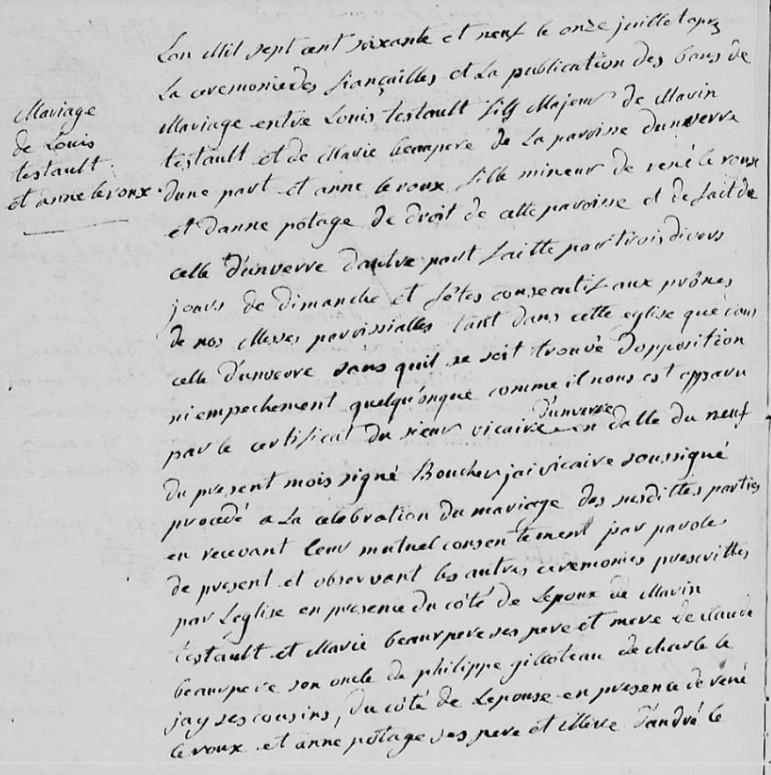 Mariage
de Louis
testault
et anne le roux
Lan Mil sept cent soixante et neuf le onze juillet apres
La ceremonie des fiançailles et La publication des bans de
Mariage entre Louis testault fils Majeur de Marin
testault et de Marie beaupere de La paroisse dunverre
dune part et anne le roux fille mineur de rené le roux
et danne potage de droit de cette paroisse et de fait de
celle d'unverre dautre part faitte par trois divers
jours de dimanche et fêtes consecutif aux prônes
de nos Messes paroissialles tant dans cette eglise que dans
celle d'unverre sans quil se soit trouvé d'opposition
ni empechement quelquonque comme il nous est apparu
par le certificat du sieur vicaire d'unverre en datte du neuf
du present mois signé Boucher jai vicaire soussigné
procedé a La celebration du mariage des susdittes parties
en recevant leur mutuel consentement par paroles
de present et observant les autres ceremonies prescrittes
par L'eglise en presence du côté de Lepoux de Marin
testault et Marie beaurpere ses pere et mere de claude
beaurpere son oncle de philippe gilloteau de charle le
jay ses cousins, du côté de Lepouse en presence de rené
le roux et anne potage ses pere et Mere d'andré le